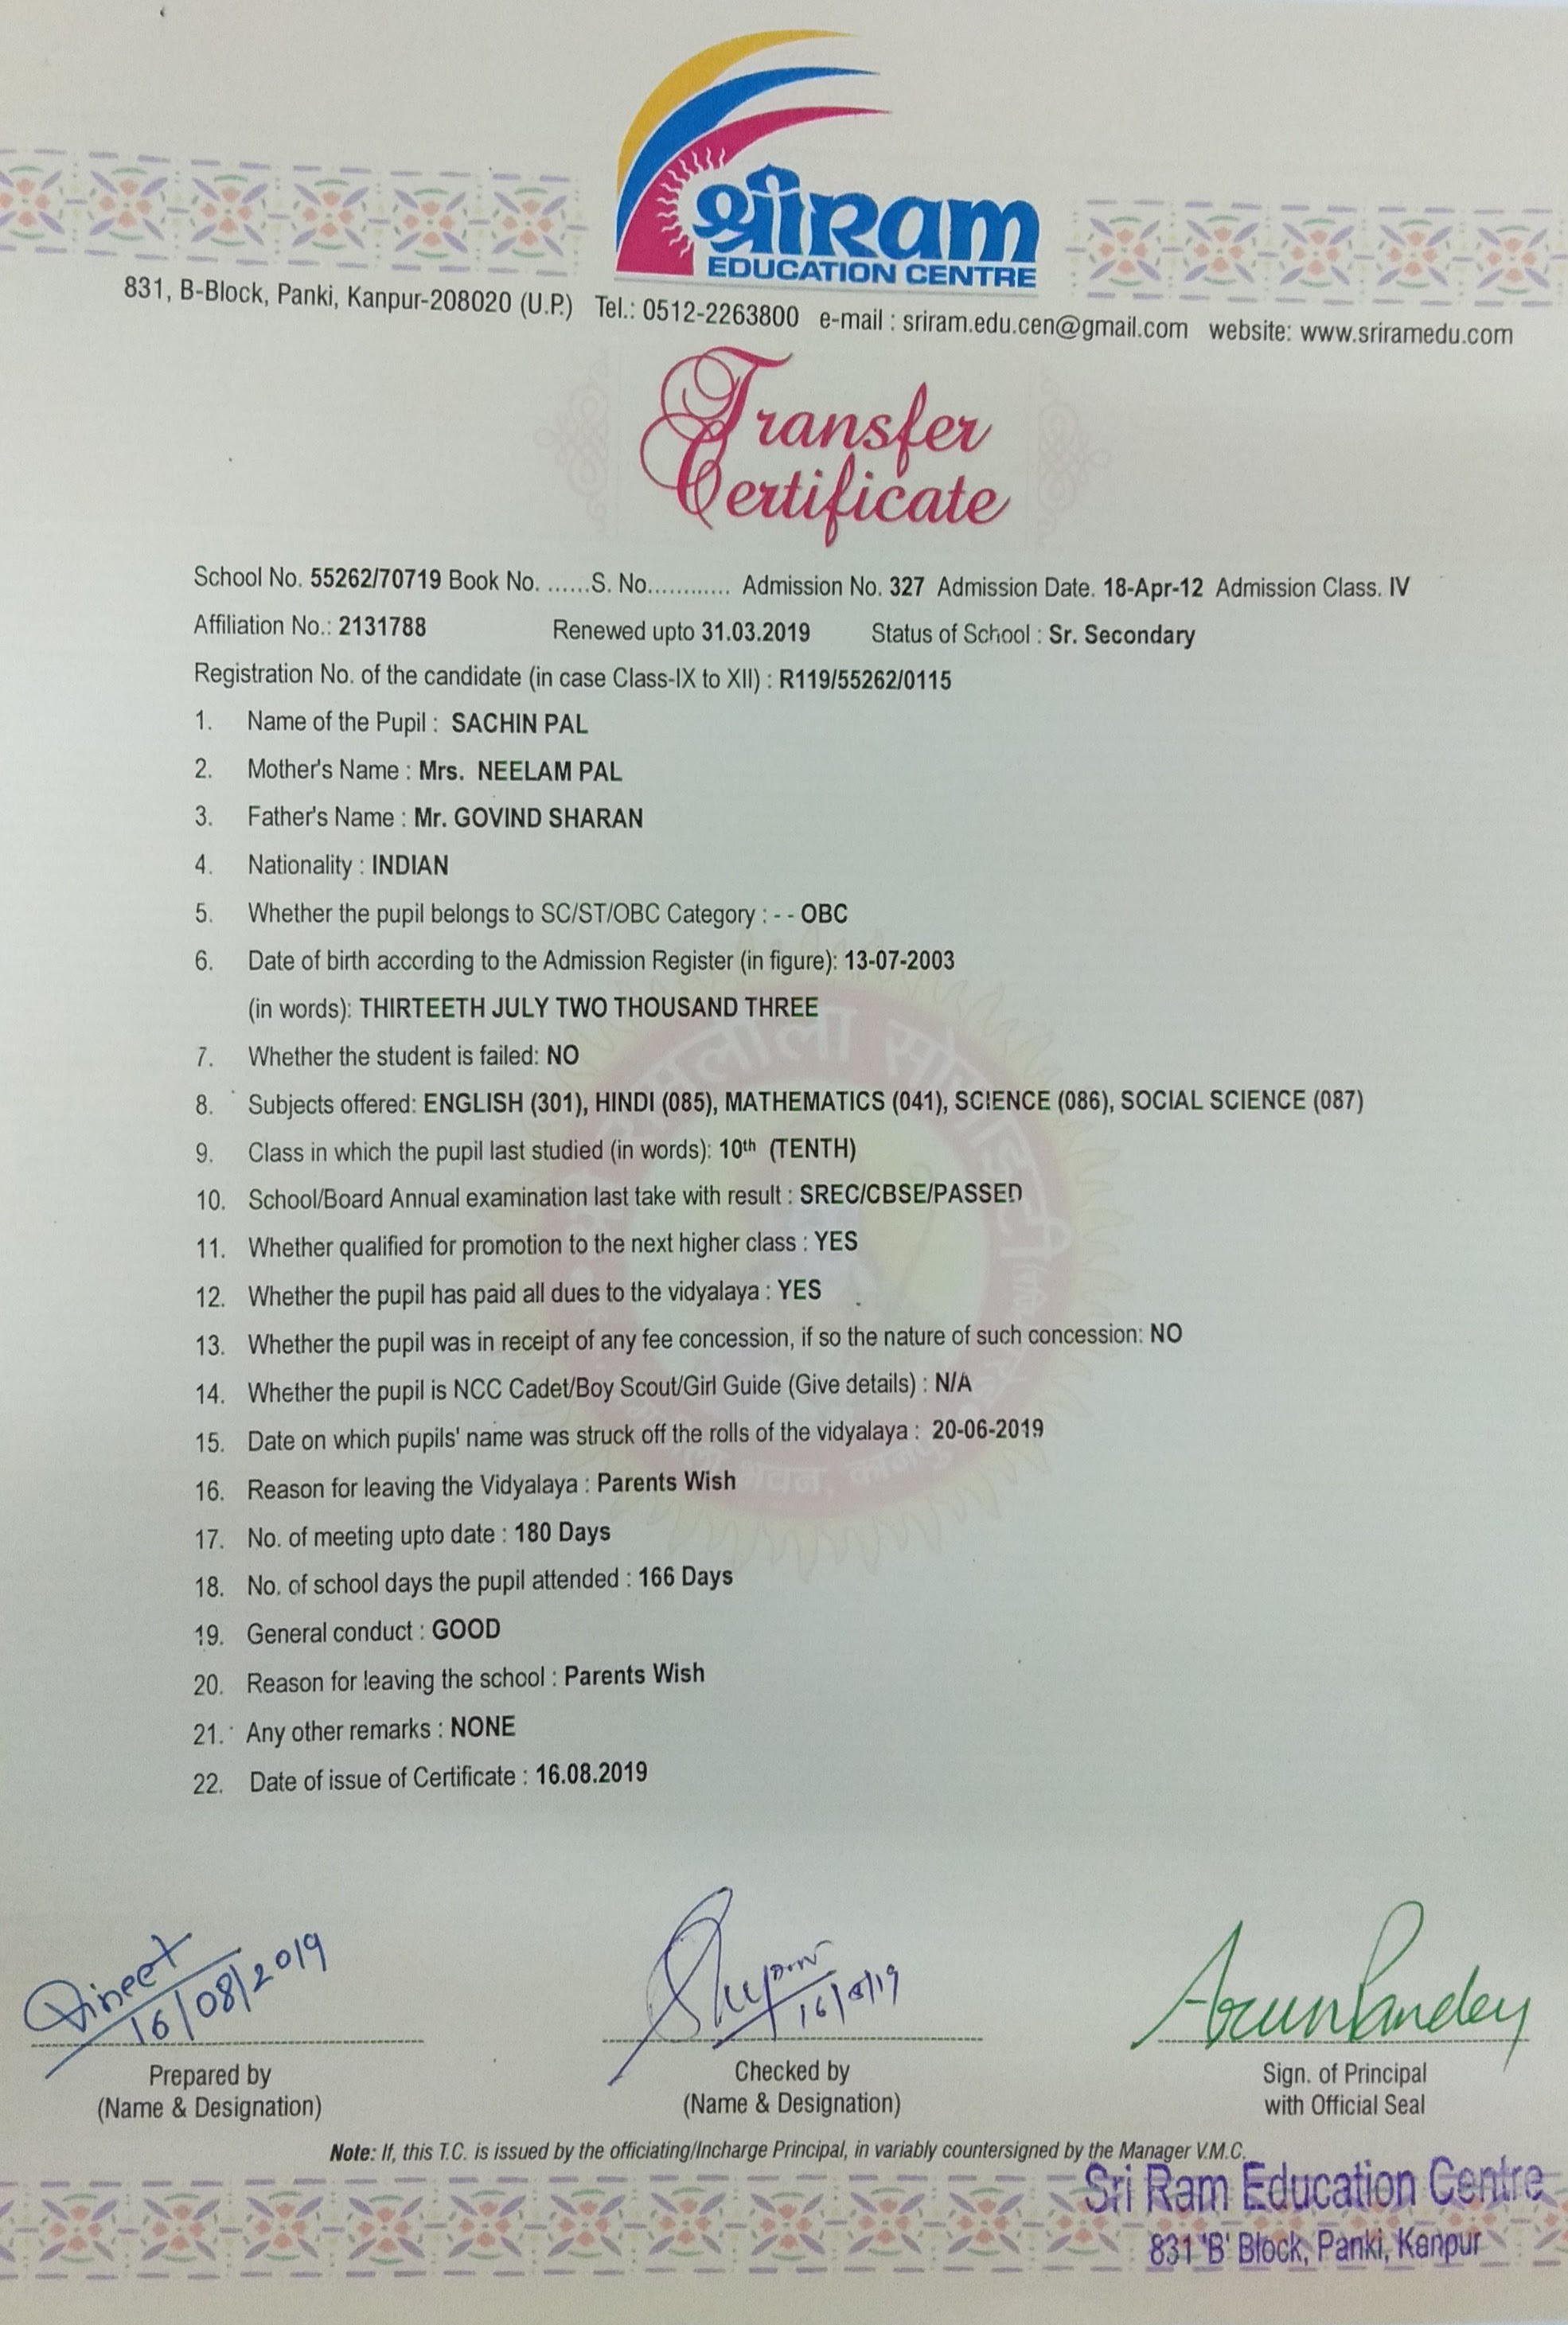 श्रीRam
EDUCATION CENTRE
831, B-Block, Panki, Kanpur-208020 (U.P.) Tel.: 0512-2263800 e-mail : sriram.edu.cen@gmail.com website: www.sriramedu.com
Transfer
Certificate
School No. 55262/70719 Book No. ......S. No............ Admission No. 327 Admission Date. 18-Apr-12 Admission Class. IV
Affiliation No.: 2131788 Renewed upto 31.03.2019 Status of School : Sr. Secondary
Registration No. of the candidate (in case Class-IX to XII) : R119/55262/0115
1. Name of the Pupil : SACHIN PAL
2. Mother's Name : Mrs. NEELAM PAL
3. Father's Name : Mr. GOVIND SHARAN
4. Nationality : INDIAN
5. Whether the pupil belongs to SC/ST/OBC Category : - - OBC
6. Date of birth according to the Admission Register (in figure): 13-07-2003
(in words): THIRTEETH JULY TWO THOUSAND THREE
7. Whether the student is failed: NO
8. Subjects offered: ENGLISH (301), HINDI (085), MATHEMATICS (041), SCIENCE (086), SOCIAL SCIENCE (087)
9. Class in which the pupil last studied (in words): 10th (TENTH)
10. School/Board Annual examination last take with result : SREC/CBSE/PASSED
11. Whether qualified for promotion to the next higher class : YES
12. Whether the pupil has paid all dues to the vidyalaya : YES
13. Whether the pupil was in receipt of any fee concession, if so the nature of such concession: NO
14. Whether the pupil is NCC Cadet/Boy Scout/Girl Guide (Give details) : N/A
15. Date on which pupils' name was struck off the rolls of the vidyalaya : 20-06-2019
16. Reason for leaving the Vidyalaya : Parents Wish
17. No. of meeting upto date : 180 Days
18. No. of school days the pupil attended : 166 Days
19. General conduct : GOOD
20. Reason for leaving the school : Parents Wish
21. Any other remarks : NONE
22. Date of issue of Certificate : 16.08.2019
16/08/2019
16/8/19
Arun Pandey
Prepared by
(Name & Designation)
Checked by
(Name & Designation)
Sign. of Principal
with Official Seal
Note: If, this T.C. is issued by the officiating/Incharge Principal, in variably countersigned by the Manager V.M.C.
Sri Ram Education Centre
831 'B' Block, Panki, Kanpur